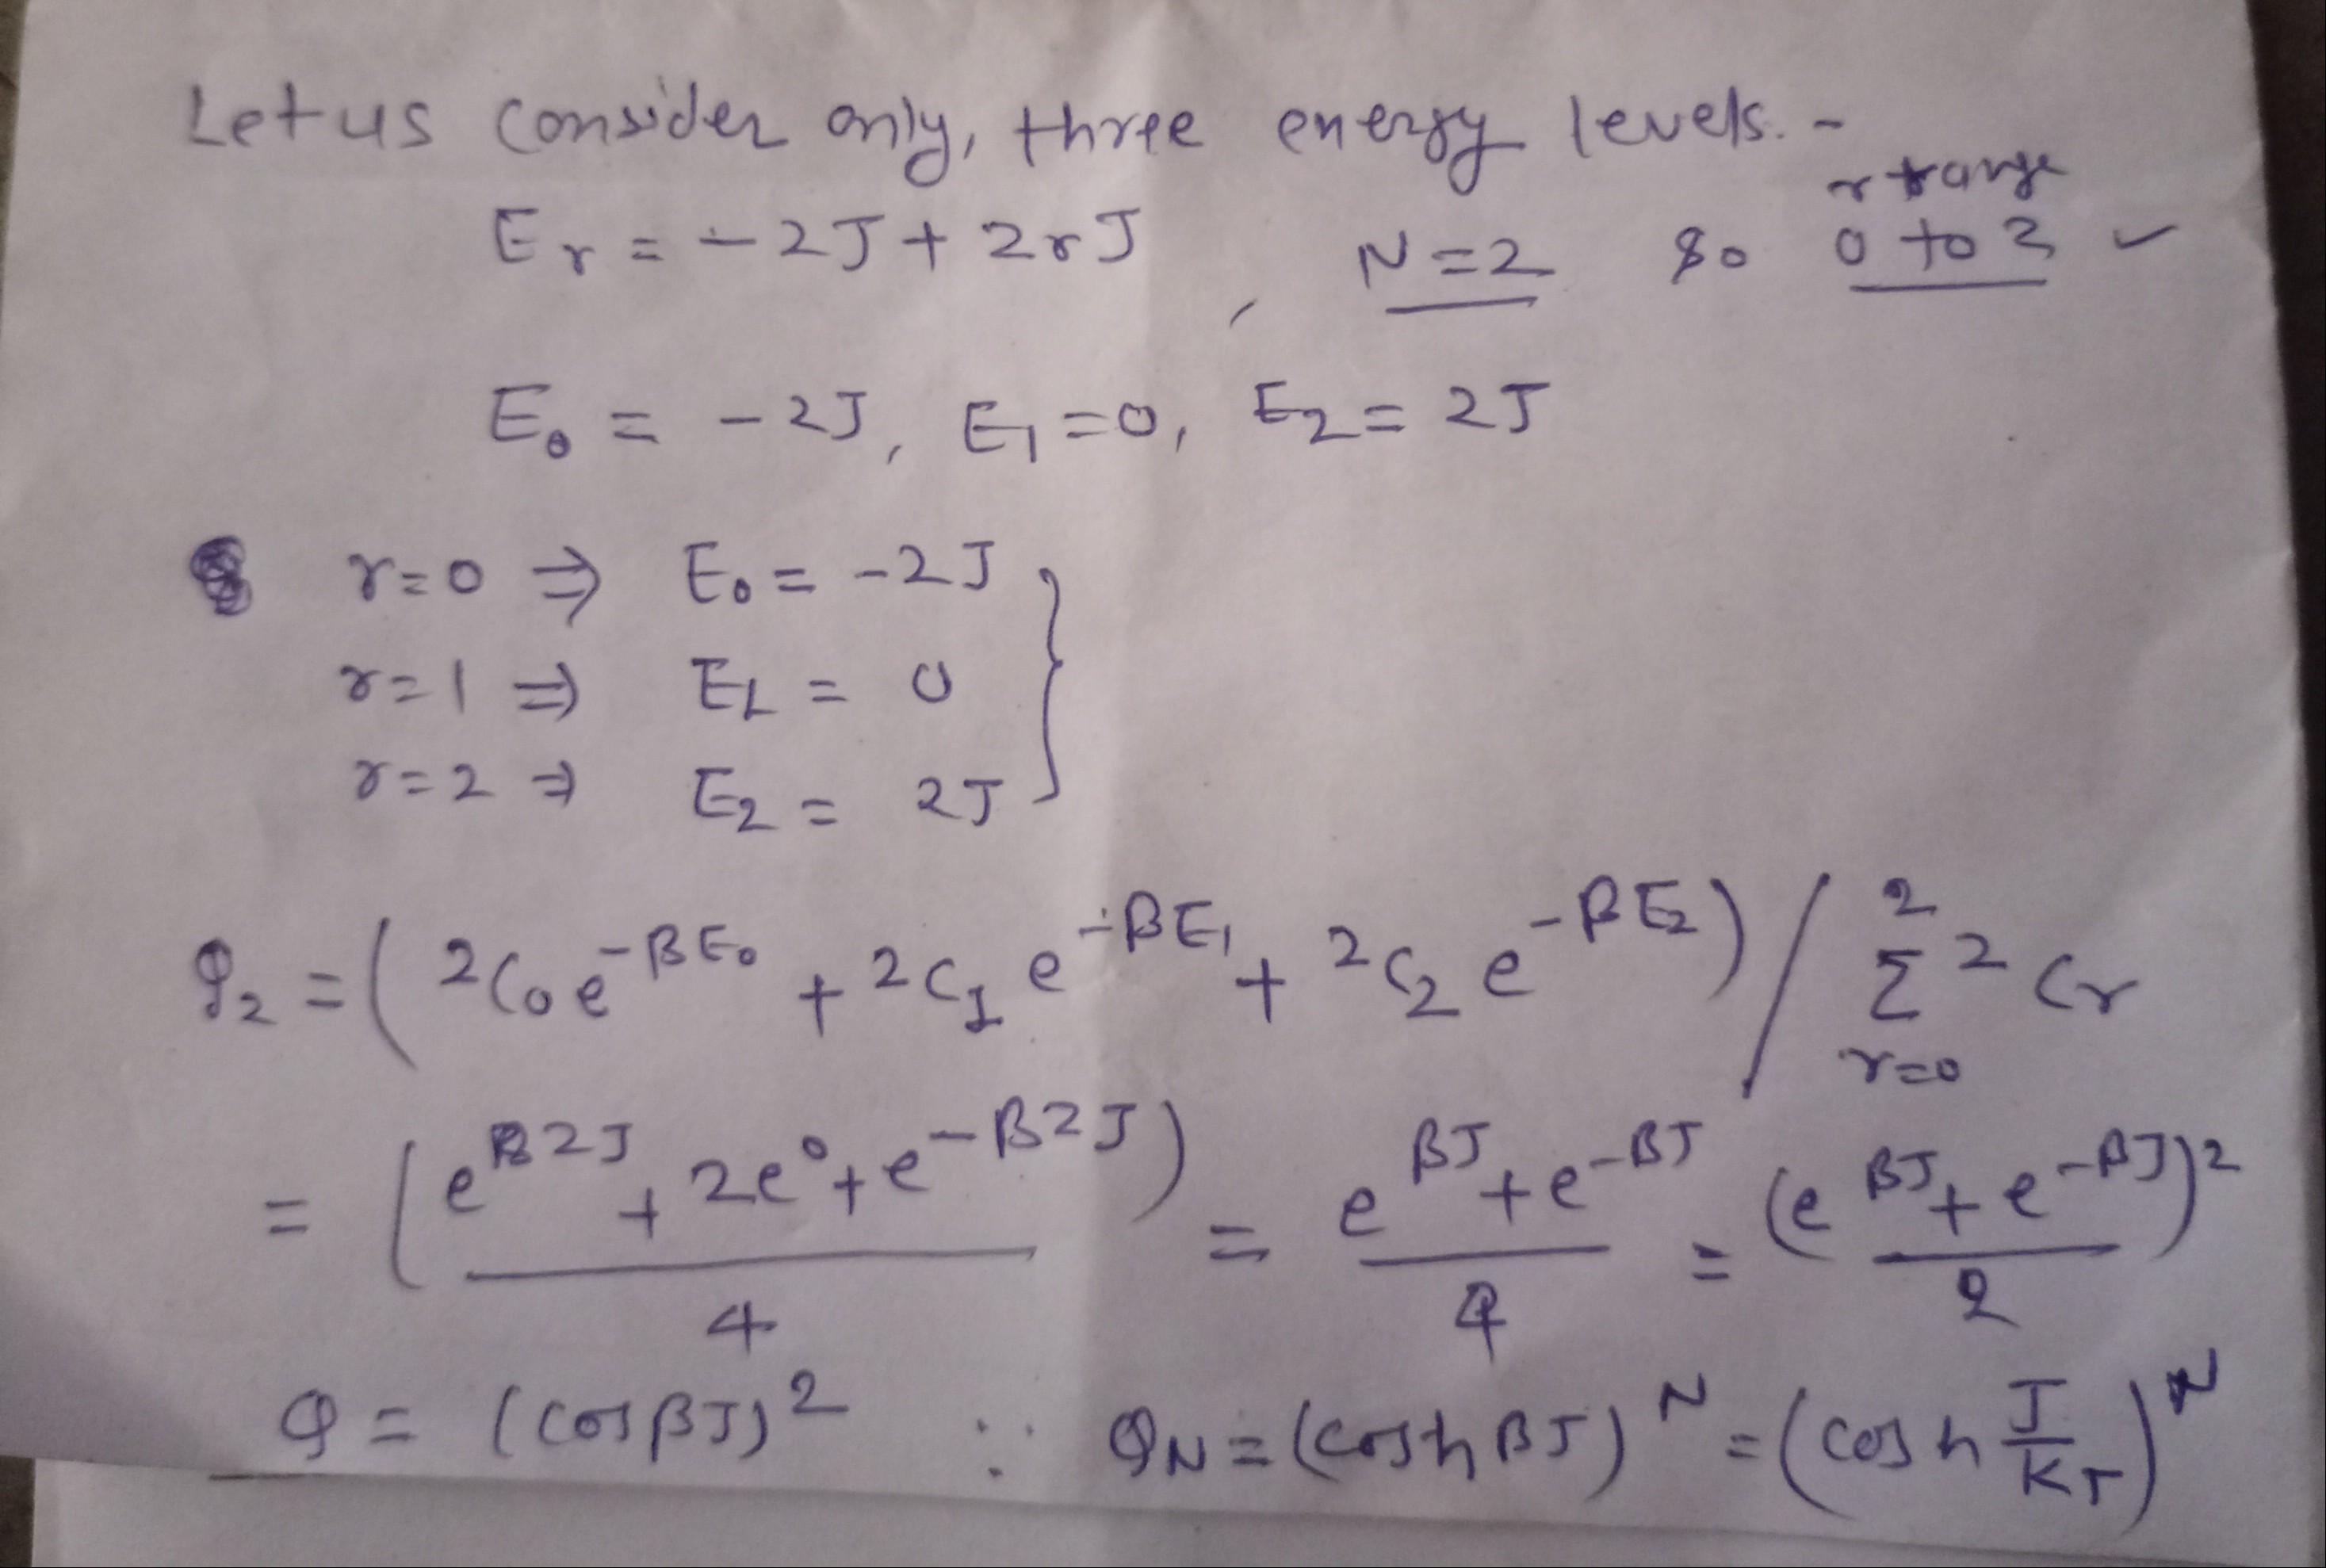 Let us consider only, three energy levels. -
r range
Er = -2J + 2rJ , N=2 So 0 to 2 ✓
E₀ = -2J, E₁ = 0, E₂ = 2J
r=0 ⇒ E₀ = -2J
r=1 ⇒ E₁ = 0
r=2 ⇒ E₂ = 2J
Q₂ = ( ²C₀ e^{-βE₀} + ²C₁ e^{-βE₁} + ²C₂ e^{-βE₂} ) / Σ_{r=0}^{2} ²Cr
= ( e^{β2J} + 2e⁰ + e^{-β2J} ) / 4 = e^{βJ} + e^{-βJ} / 4 = (e^{βJ} + e^{-βJ})² / 2
Q = (cosβJ)² ∴ Q_N = (coshβJ)^N = (cosh J/KT)^N